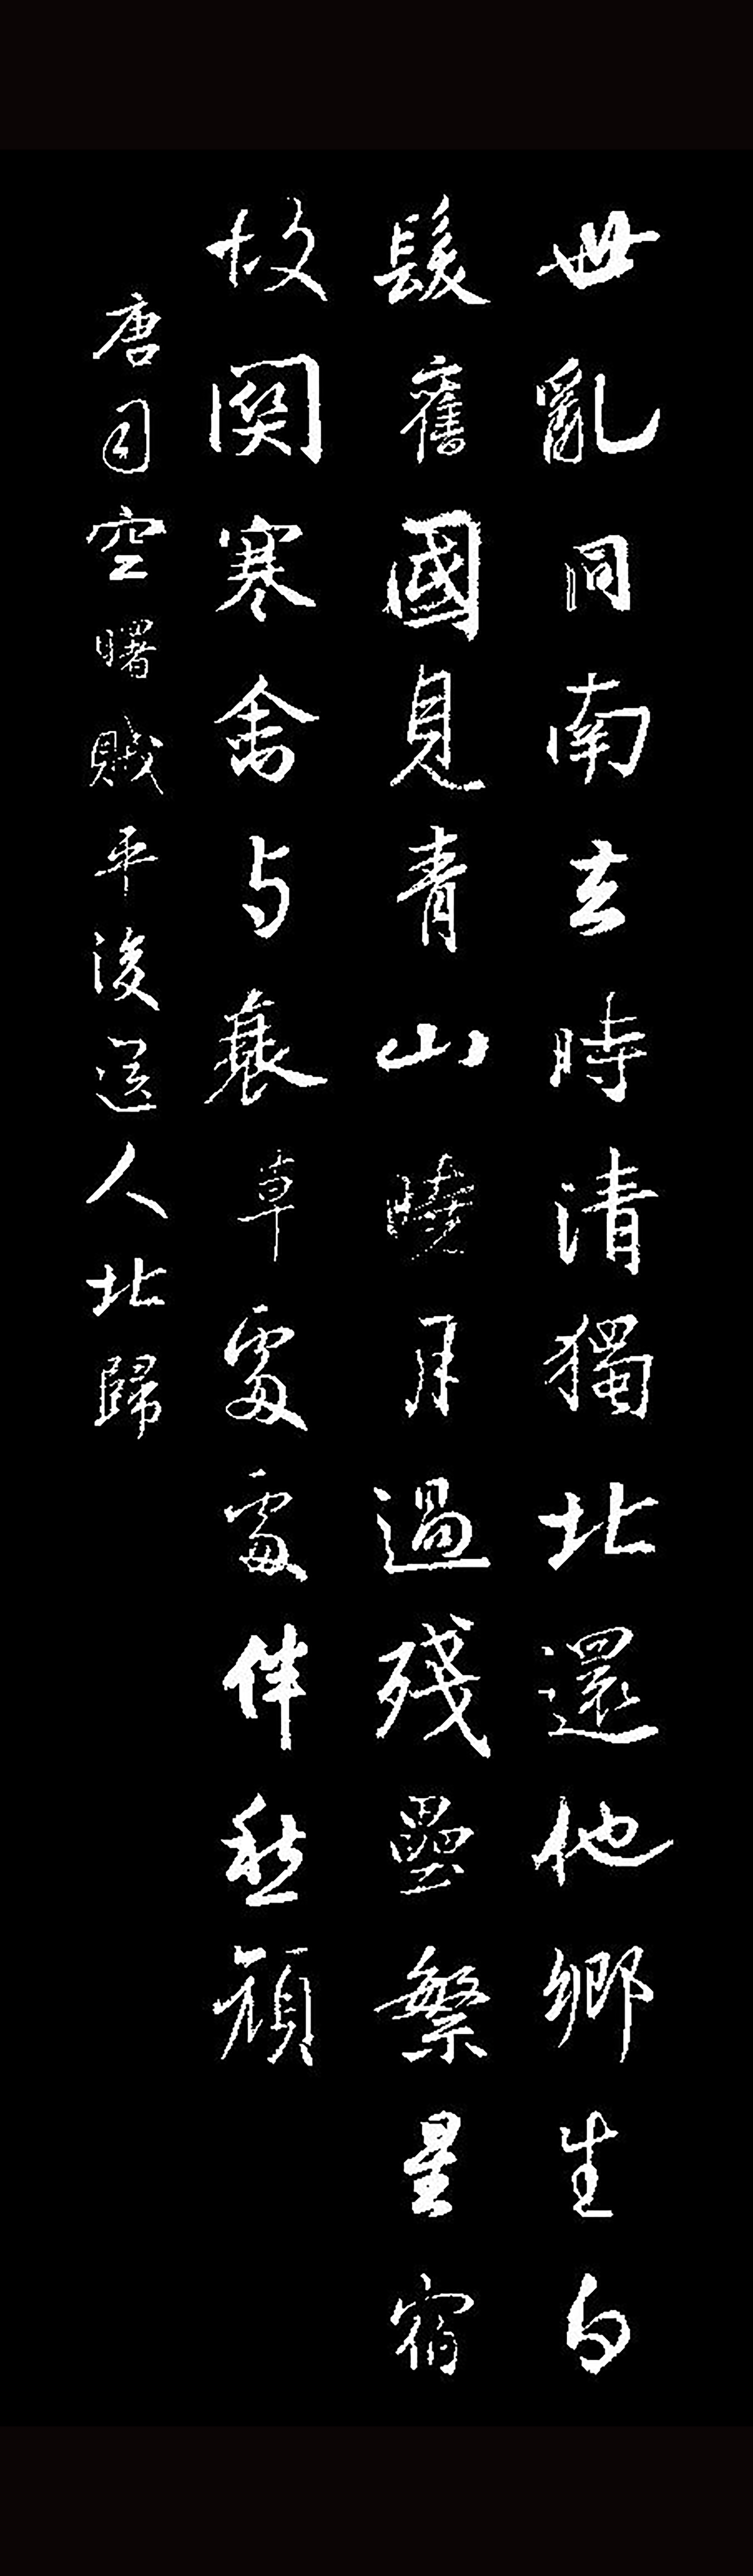 世亂同南去時清獨北還他鄉生白
髮舊國見青山曉月過殘壘繁星宿
故關寒禽与衰草處處伴愁顏
唐司空曙賊平後送人北歸